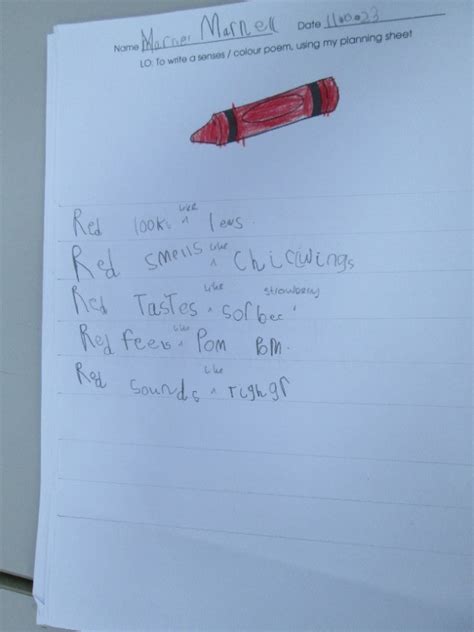 Name Marnell Date
LO: To write a senses / colour poem, using my planning sheet
Red looks like
Red smells like Chicwings
Red Tastes like strawberry sorbec
Red feels like Pom Pom.
Red sounds like